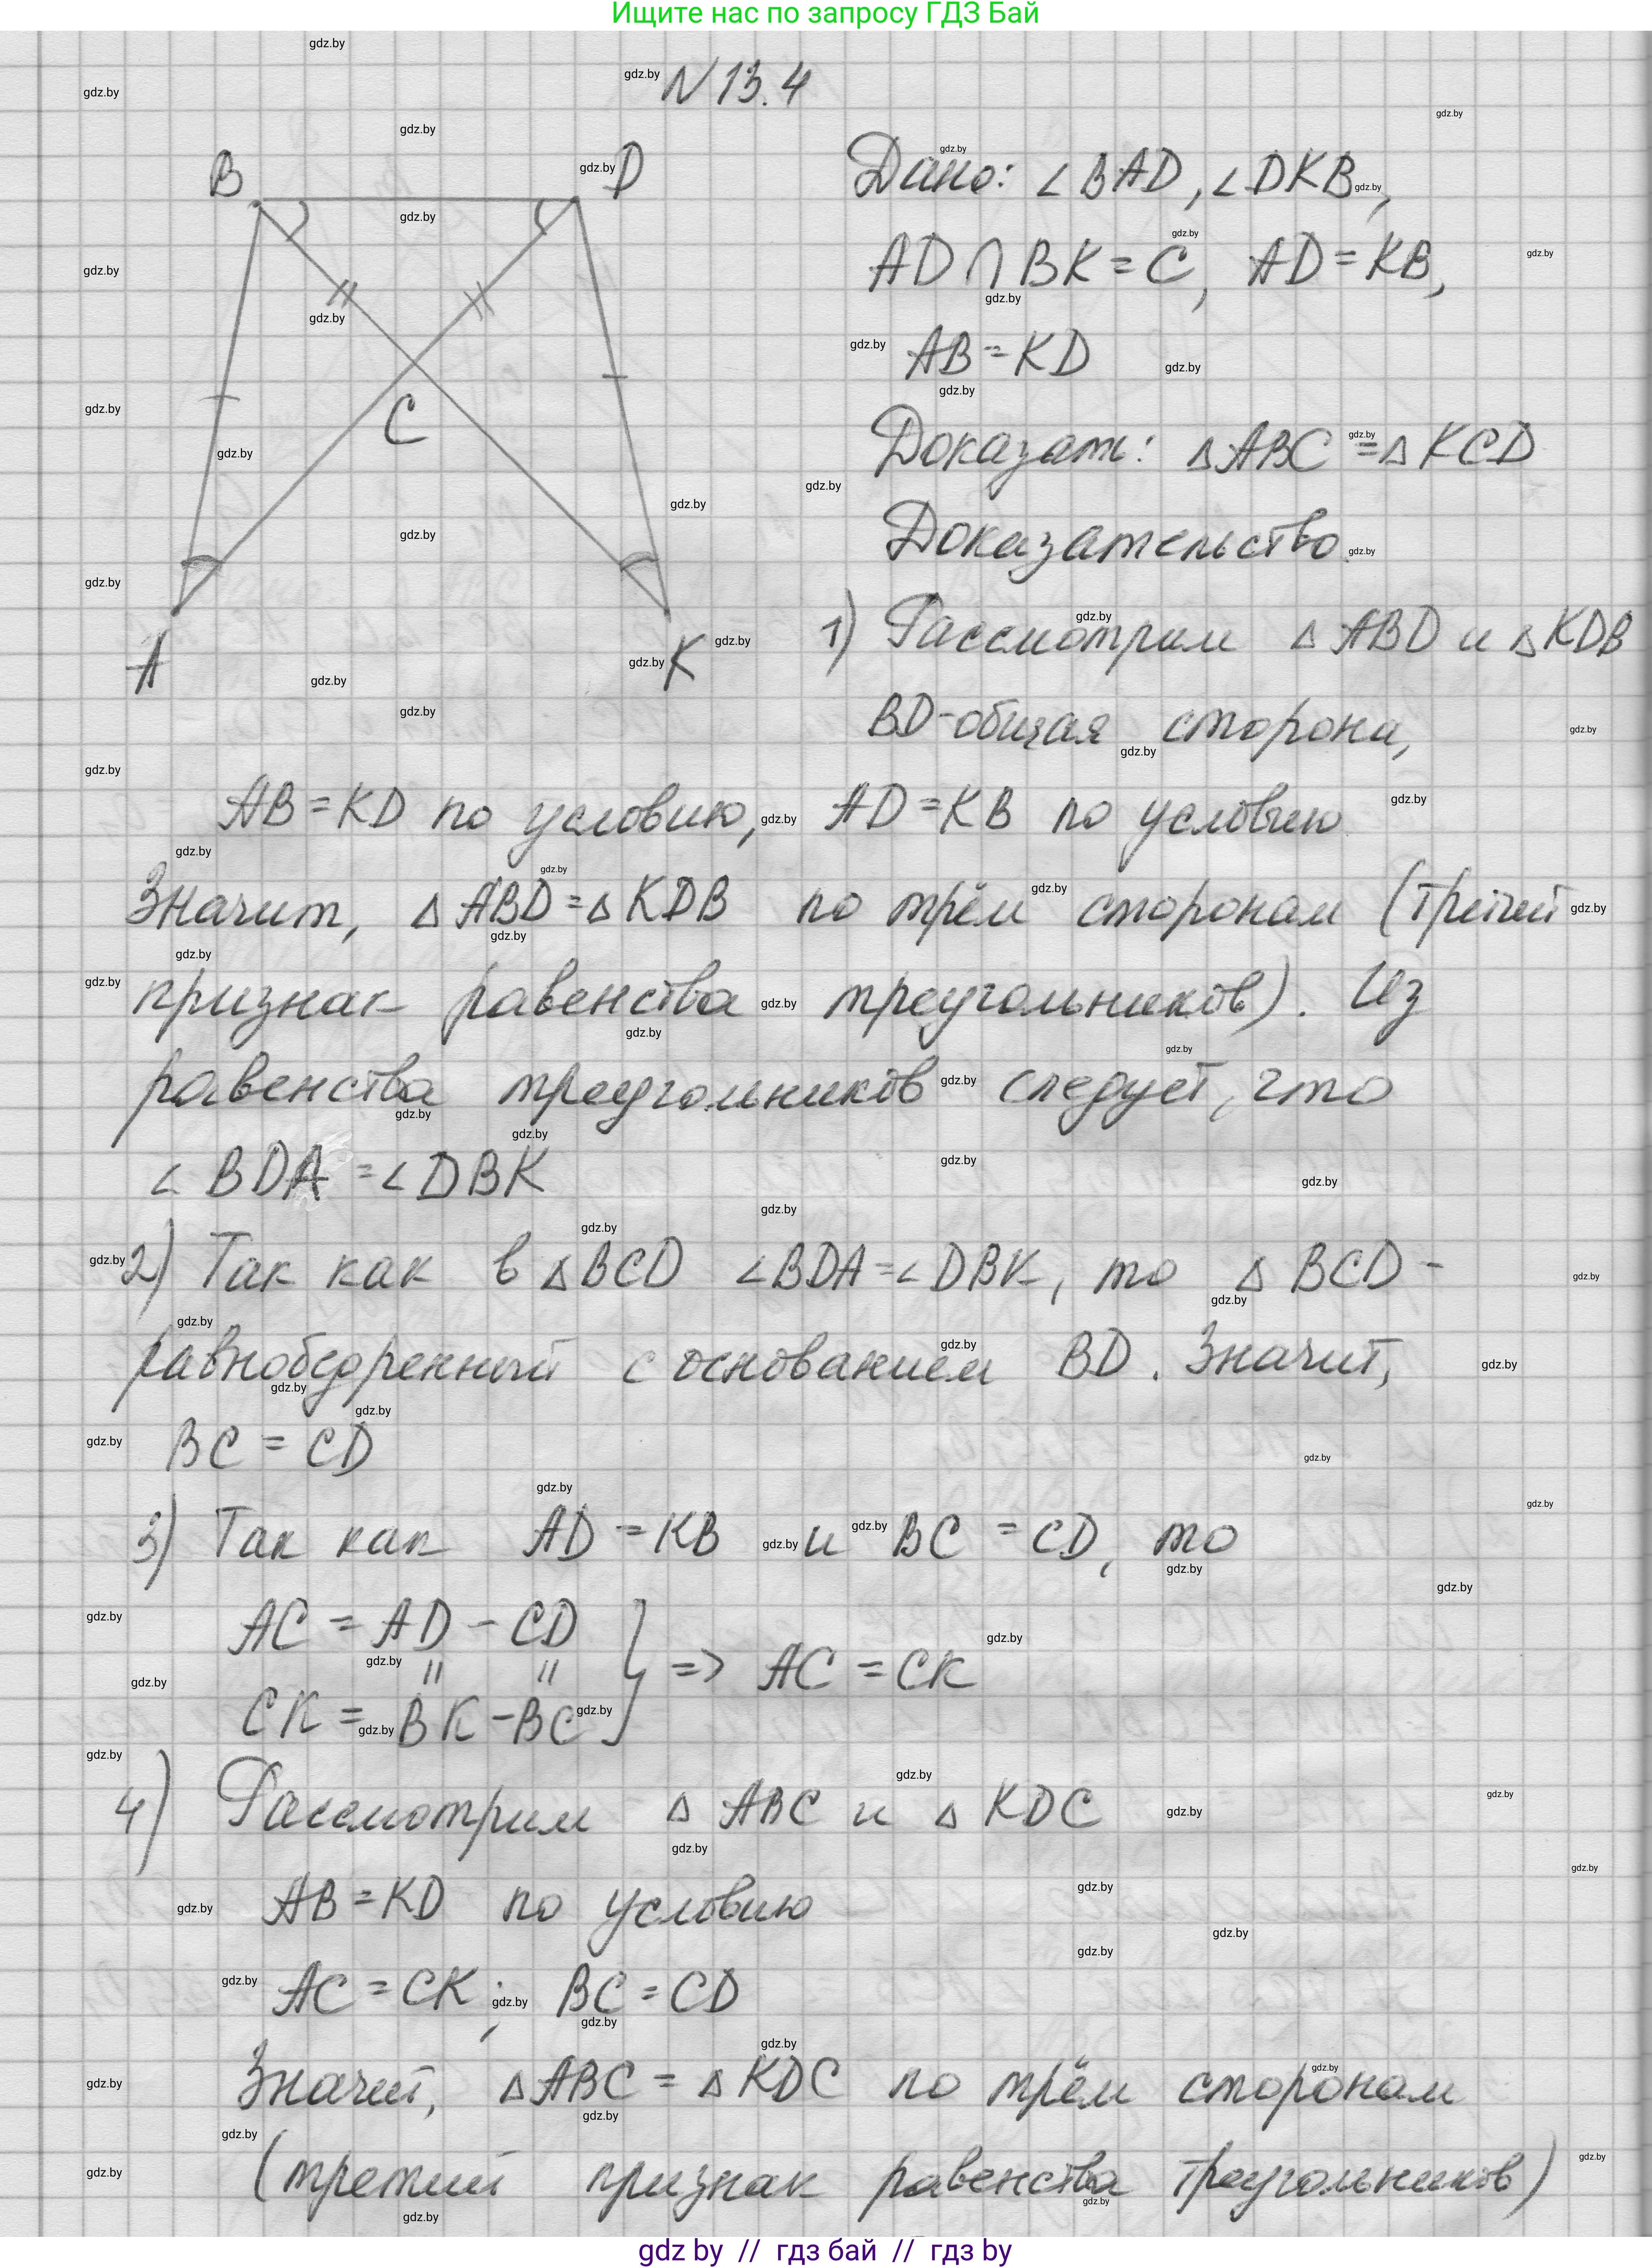 Ищите нас по запросу ГДЗ Бай
N 13.4
B
D
C
A
K
Дано: ∠BAD, ∠DKB,
AD ∩ BK = C, AD = KB,
AB = KD
Доказать: △ABC = △KCD
Доказательство.
1) Рассмотрим △ABD и △KDB
BD - общая сторона,
AB = KD по условию, AD = KB по условию
Значит, △ABD = △KDB по трём сторонам (третий
признак равенства треугольников). Из
равенства треугольников следует, что
∠BDA = ∠DBK
2) Так как в △BCD ∠BDA = ∠DBK, то △BCD -
равнобедренный с основанием BD. Значит,
BC = CD
3) Так как AD = KB и BC = CD, то
AC = AD - CD
" "
CK = BK - BC } => AC = CK
4) Рассмотрим △ABC и △KDC
AB = KD по условию
AC = CK; BC = CD
Значит, △ABC = △KDC по трём сторонам
(третий признак равенства треугольников)
gdz by // гдз бай // гдз by